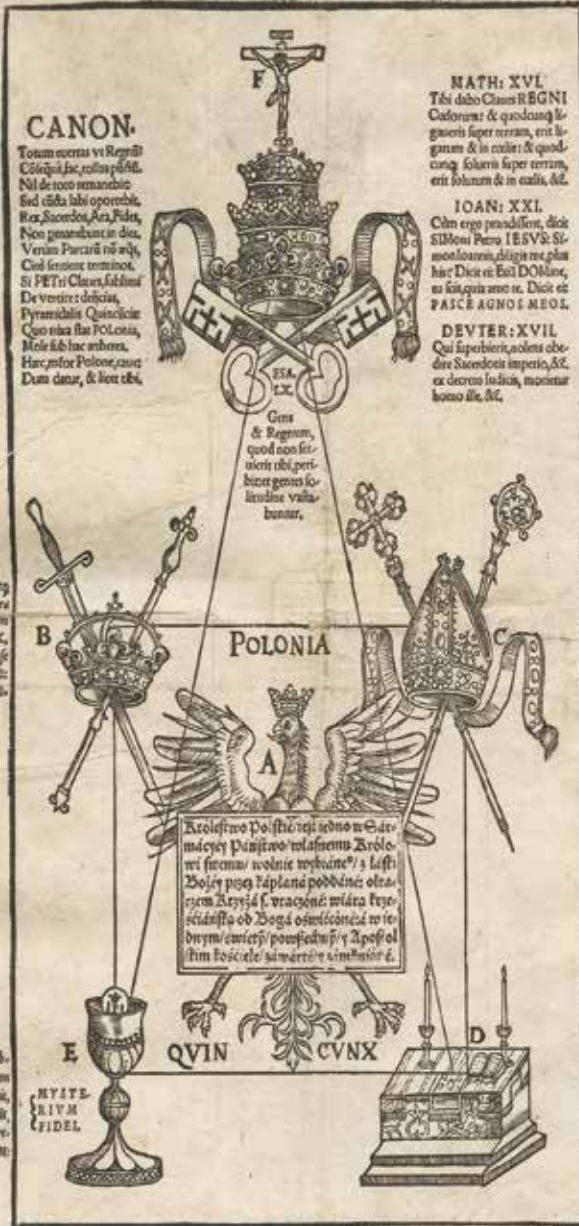 F
CANON.
Totum evertas vt
fac, tollas
Nil de toto remanebit
Sed cūcta labi oportebit.
Rex, Sacerdos, Ara, Fides,
Non in dies,
Verum Parcarū nō
Citò sentient terminos.
Si PETri Claues, sublimi
De vertice deijcias,
Pyramidalis
Quo nixa stat POLonia,
Mole sub hac
Hæc, miser Polone, caue:
Dum datur, & licet tibi.
MATH: XVI.
Tibi dabo Claues REGNI
Cœlorum: & quodcunq; li-
gaueris super terram, erit li-
gatum & in cœlis: & quod-
cunq; solueris super terram,
erit solutum & in cœlis, &c.
IOAN: XXI.
Cùm ergo prandissent, dicit
SIMoni Petro IESVS: Si-
mon Ioannis, diligis me, plus
his? Dicit ei: Etiā DOMine,
tu scis, quia amo te. Dicit ei:
PASCE AGNOS MEOS.
DEVTER: XVII.
Qui superbierit, nolens obe-
dire Sacerdotis imperio, &c.
ex decreto Iudicis, morietur
homo ille, &c.
ESA.
LX.
Gens
& Regnum,
quod non ser-
uierit tibi, peri-
bit: et gentes so-
litudine vasta-
buntur.
B
C
POLONIA
A
Królestwo Polskie/ jest iedno w Sár-
mácyey Páństwo/ włásnemu Krolo-
wi swemu/ wolnie wybráne°/ z łáski
Bożéy przez kápłaná poddáné: ołta-
rzem Krzyżá ś. vraczóné: wiárą krze-
śćiáńską od Bogá oświécóné: á w ie-
dnym/ / powszechnym/ y Apostol
skim kościele/ záwárté/ y zámknioné.
E
D
QVIN CVNX
MYSTE-
RIVM
FIDEI.